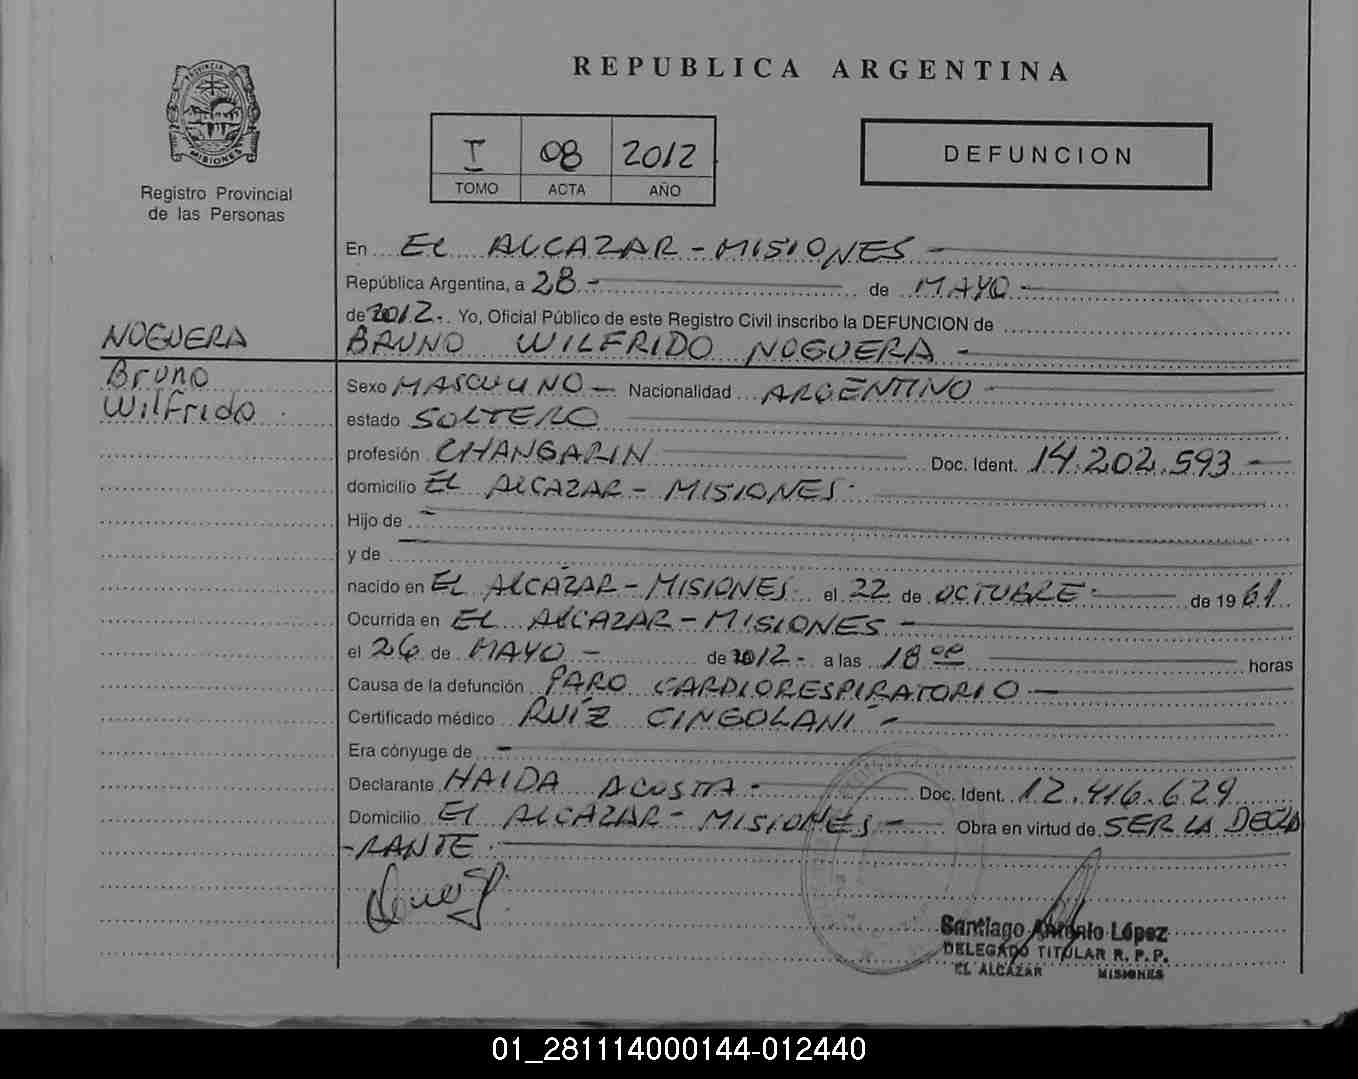 REPUBLICA ARGENTINA
PROVINCIA DE
MISIONES
Registro Provincial
de las Personas
I 08 2012
TOMO ACTA AÑO
DEFUNCION
En EL ALCAZAR - MISIONES -
República Argentina, a 28 - de MAYO -
de 2012 -. Yo, Oficial Público de este Registro Civil inscribo la DEFUNCION de
NOGUERA
BRUNO WILFRIDO NOGUERA -
Bruno
Wilfrido
Sexo MASCULINO - Nacionalidad ARGENTINO
estado SOLTERO
profesión CHANGARIN Doc. Ident. 14.202.593 -
domicilio EL ALCAZAR - MISIONES
Hijo de -
y de -
nacido en EL ALCAZAR - MISIONES el 22 de OCTUBRE - de 1961
Ocurrida en EL ALCAZAR - MISIONES -
el 26 de MAYO - de 2012 - a las 18 horas
Causa de la defunción PARO CARDIORESPIRATORIO -
Certificado médico RUIZ CINGOLANI -
Era cónyuge de -
Declarante HAIDA ACOSTA - Doc. Ident. 12.416.629
Domicilio EL ALCAZAR - MISIONES - Obra en virtud de SER LA DECLA
-RANTE
Santiago Antonio López
DELEGADO TITULAR R. P. P.
EL ALCAZAR MISIONES
01_281114000144-012440